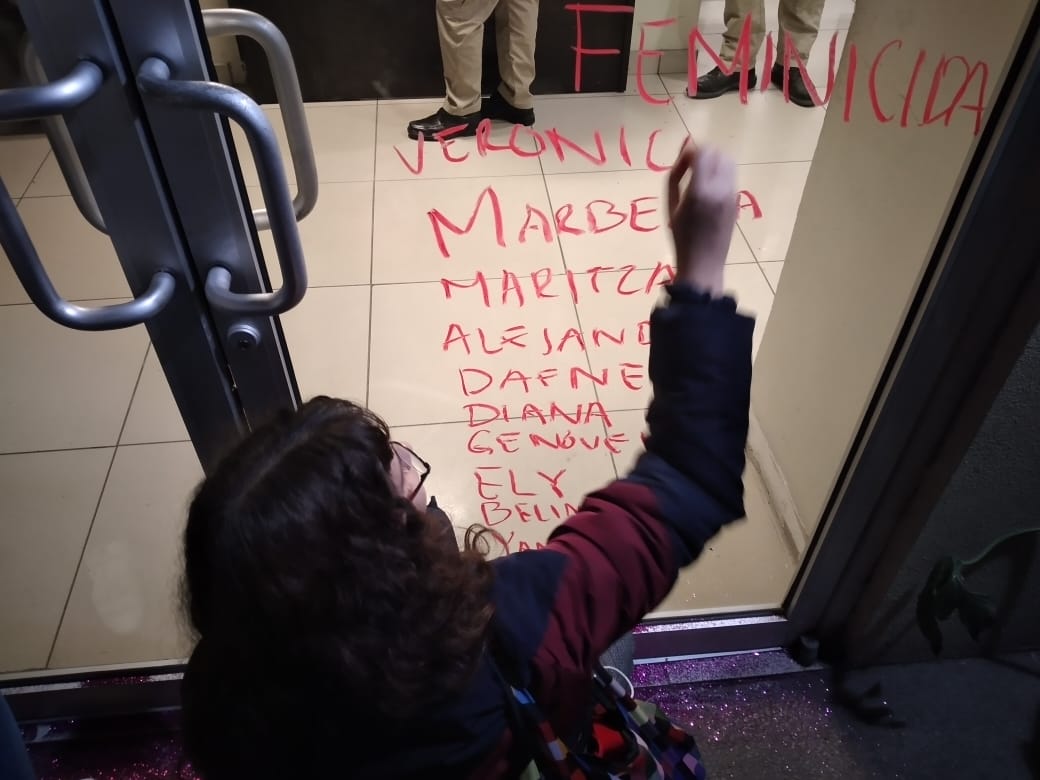 FEMINICIDA
VERONIC
MARBE A
MARITZA
ALEJAND
DAFNE
DIANA
GENOVE
ELY
BELIN
YAN